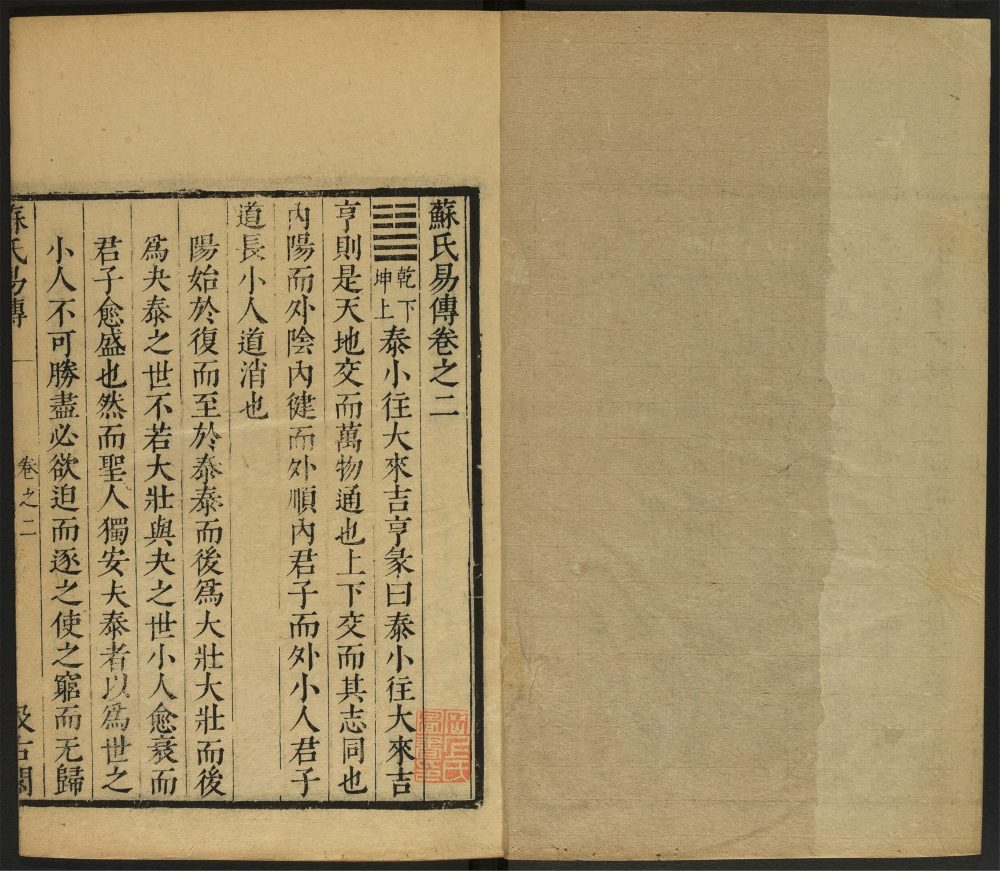 蘇氏易傳卷之二
乾下
坤上
泰小往大來吉亨彖曰泰小往大來吉
亨則是天地交而萬物通也上下交而其志同也
內陽而外陰內健而外順內君子而外小人君子
道長小人道消也
陽始於復而至於泰泰而後爲大壯大壯而後
爲夬泰之世不若大壯與夬之世小人愈衰而
君子愈盛也然而聖人獨安夫泰者以爲世之
小人不可勝盡必欲迫而逐之使之窮而无歸
蘇氏易傳
卷之二
汲古閣